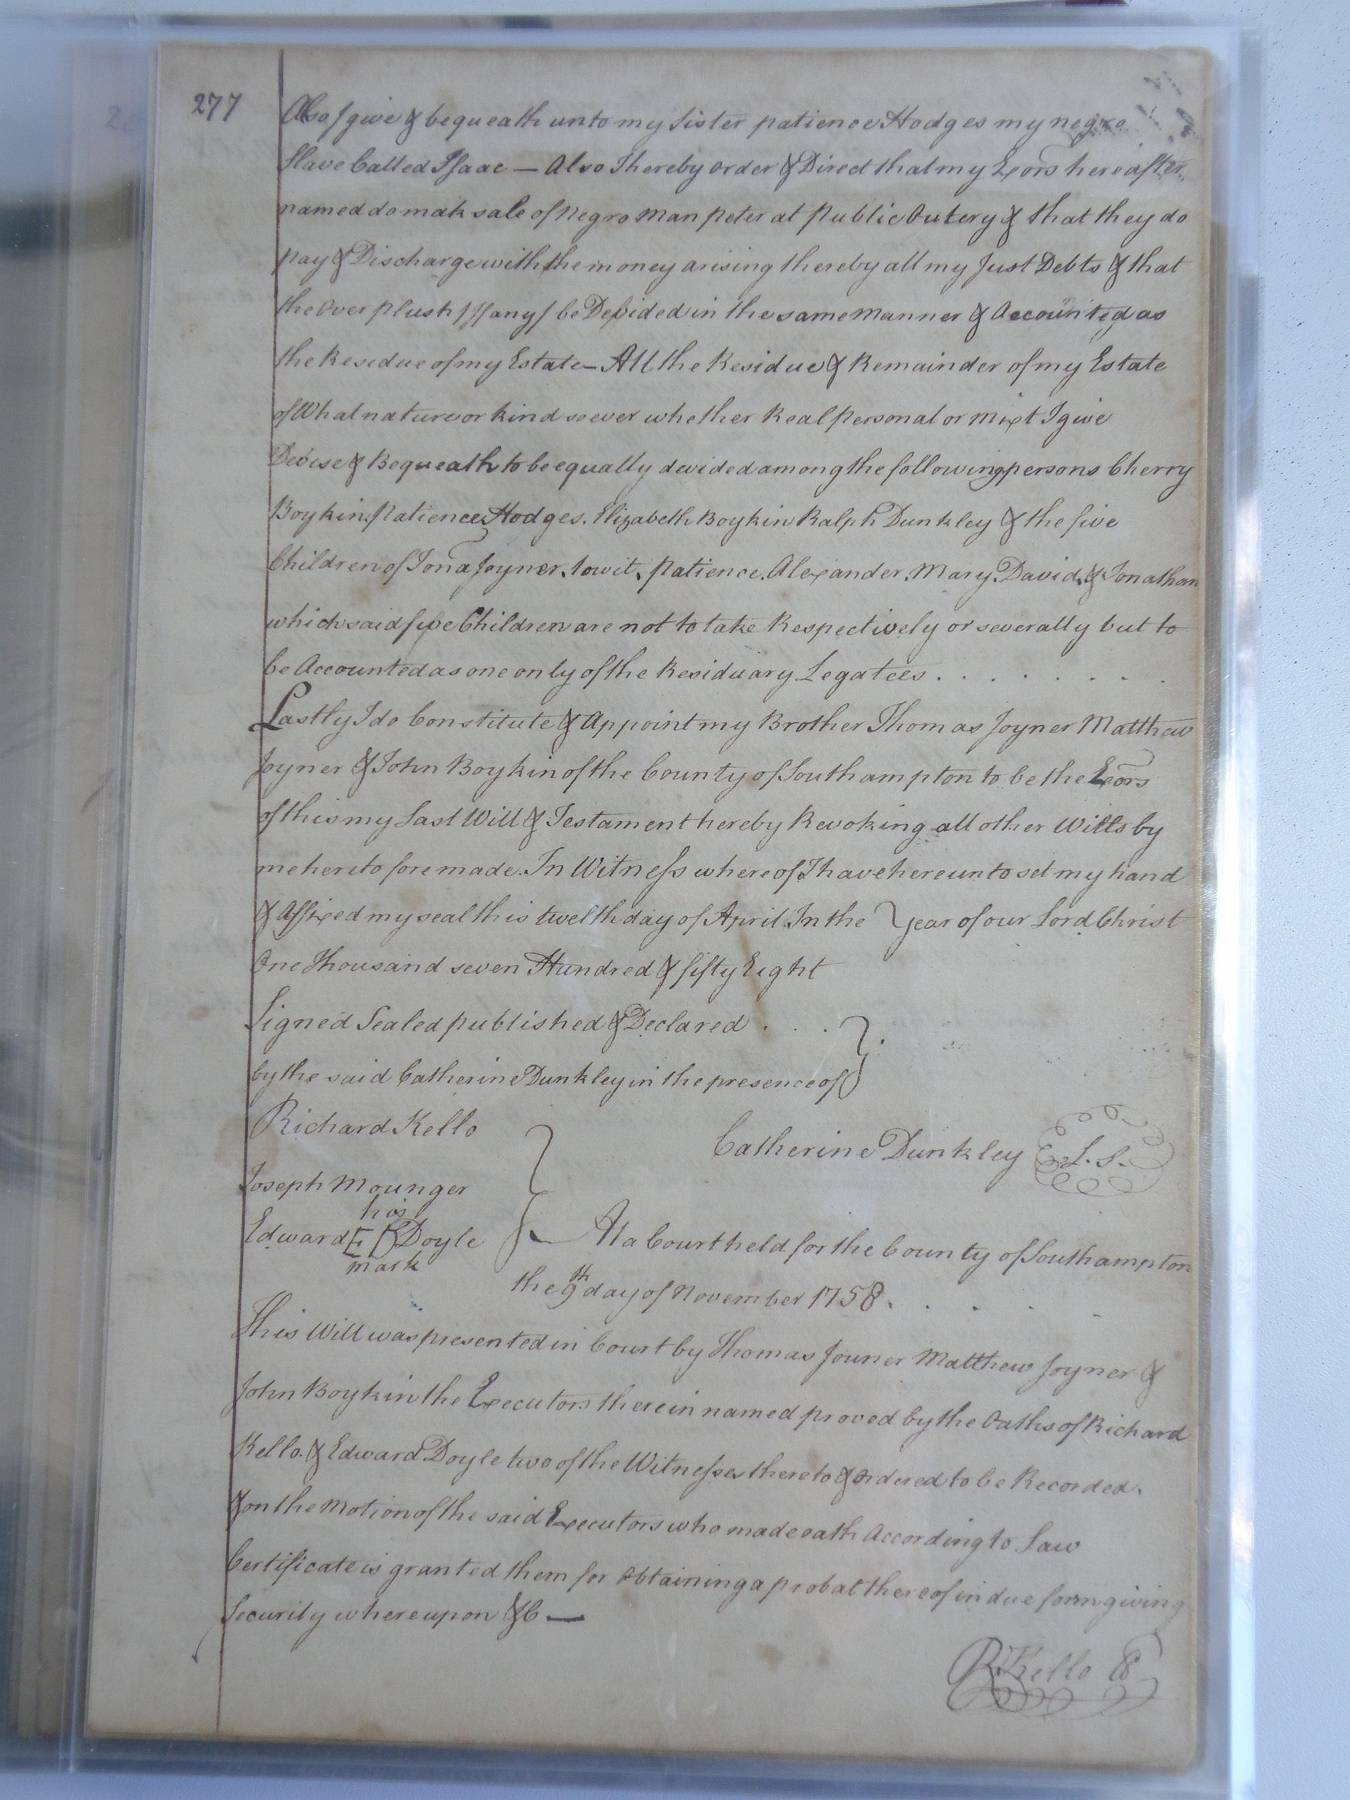 277
Also I give & bequeath unto my Sister patience Hodges my negro
Slave Called Isaac — Also I hereby order & Direct that my Exors hereafter
named do mak sale of Negro man peter at Public Outcry & that they do
pay & Discharge with the money arising thereby all my Just Debts & that
the Overplush /If any/ be Devided in the same manner & Accounted as
the Residue of my Estate — All the Residue & Remainder of my Estate
of What nature or kind soever whether Real personal or mixt I give
Devise & Bequeath to be equally devided among the following persons Cherry
Boykin, Patience Hodges, Elizabeth Boykin Ralph Dunkley & the five
Children of Jona Joyner, towit, Patience, Alexander, Mary, David, & Jonathan
which said five Children are not to take Respectively or severally but to
be Accounted as one only of the Residuary Legatees . . . . . .
Lastly I do Constitute & Appoint my Brother Thomas Joyner Matthew
Joyner & John Boykin of the County of Southampton to be the Exors
of this my Last Will & Testament hereby Revoking all other Wills by
me hereto fore made. In Witness whereof I have hereunto set my hand
& Affixed my seal this twelth day of April In the Year of our Lord Christ
One Thousand seven Hundred & fifty Eight
Signed Sealed published & Declared . . .
by the said Catherine Dunkley in the presence of
Richard Kello
Catherine Dunkley L.S.
Joseph Mounger
his
Edward E D Doyle
mark
At a Court held for the County of Southampton
the 9th day of November 1758 . . . . .
This Will was presented in Court by Thomas Jouner Matthew Joyner &
John Boykin the Executors therein named proved by the Oaths of Richard
Kello. & Edward Doyle two of the Witnesses thereto & ordered to be Recorded.
& on the Motion of the said Executors who made oath According to Law
Certificate is granted them for Obtaining a probat thereof in due form giving
Security whereupon &C —
R Kello